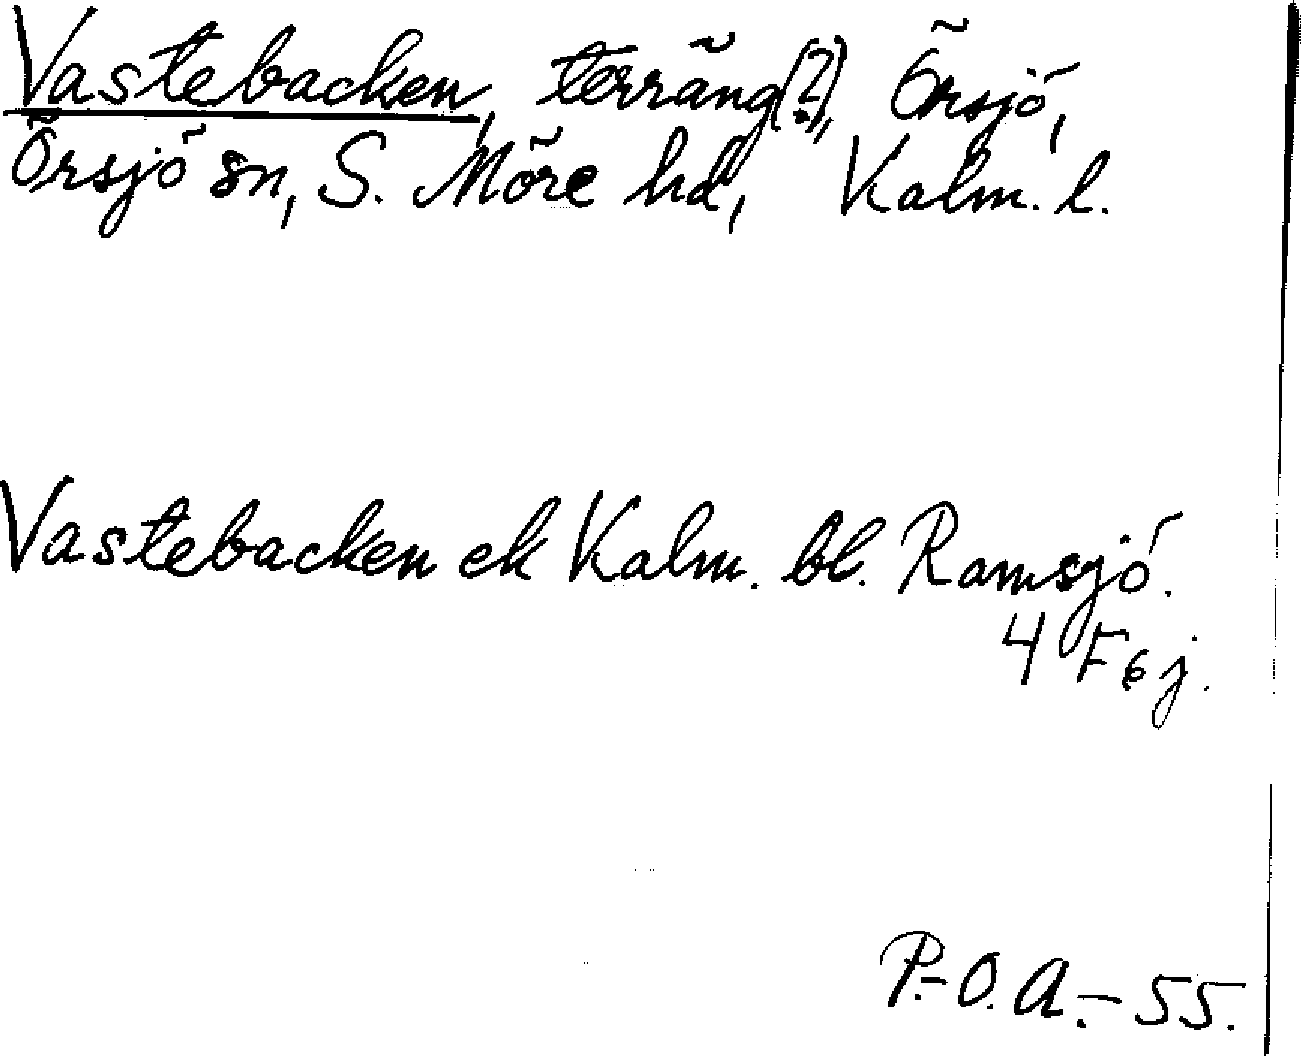 Vastebacken, terräng(?), Örsjö,
Örsjö sn, S. Möre hd, Kalm. l.
Vastebacken ek Kalm. bl. Ramsjö.
4 F 6 j.
P.-O. A.- 55.